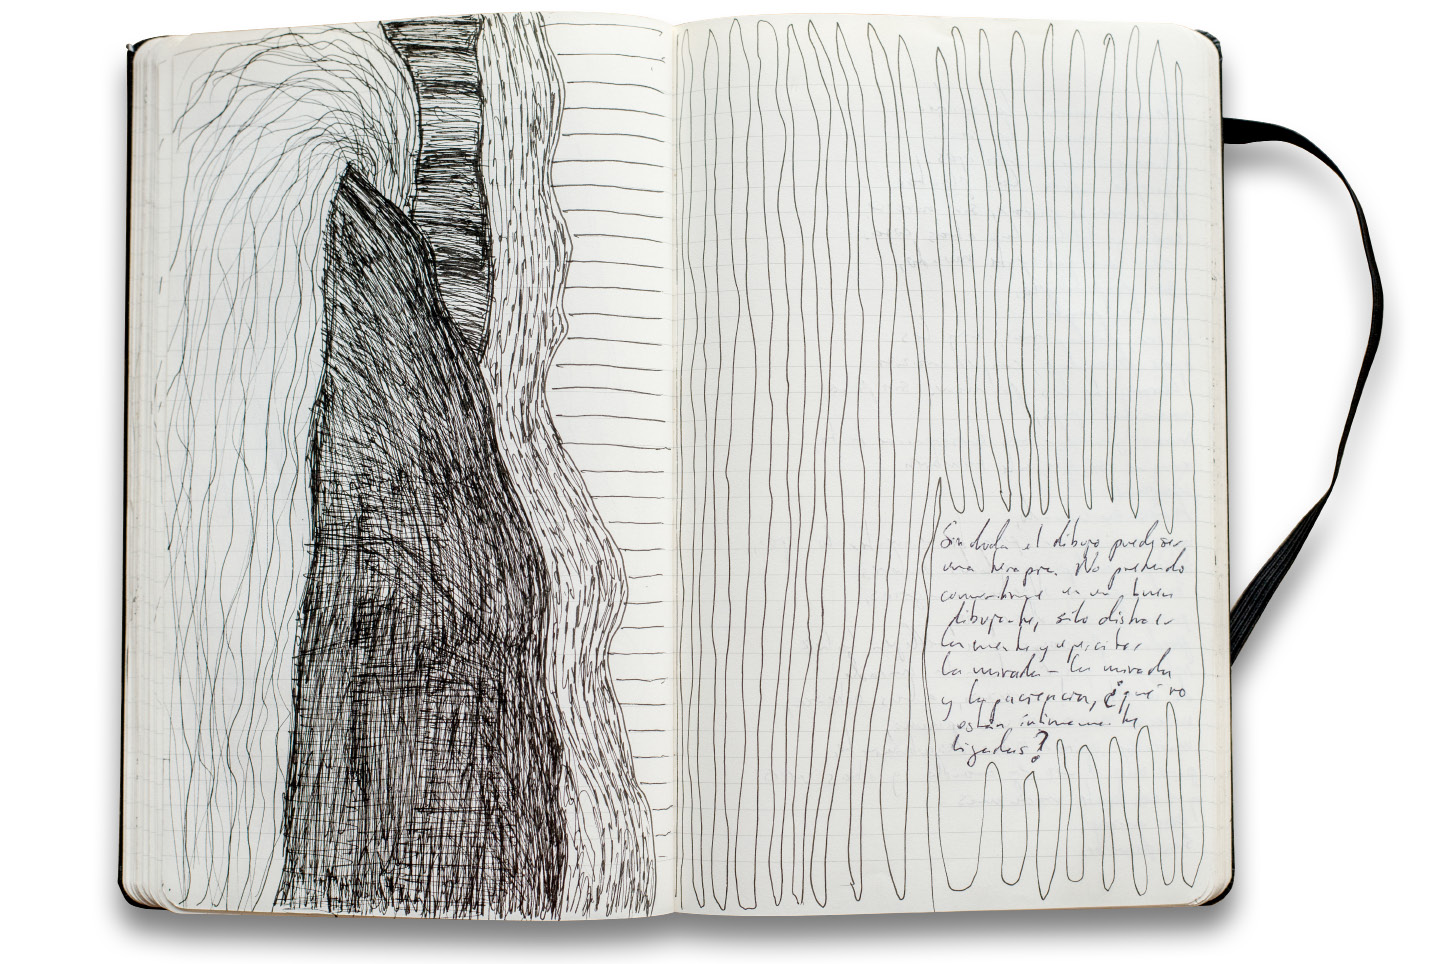 Sin duda el dibujo puede ser
una terapia. No pretendo
convertirme en un buen
dibujante, sólo distraer
la mente y ejercitar
la mirada – la mirada
y la paciencia, ¿qué no
están íntimamente
ligadas?